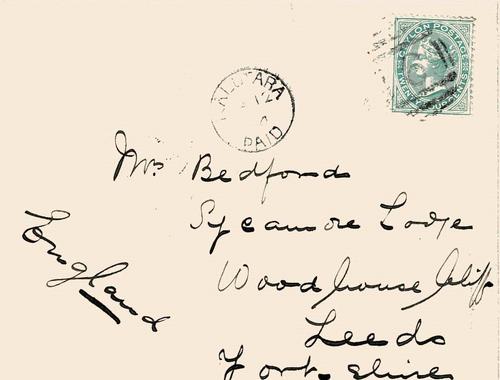 CEYLON POSTAGE
TWENTY CENTS
KALUTARA
PAID
Mrs Bedfords
Sycamore Lodge
Woodhouse Cliff
Leeds
York-shire
England